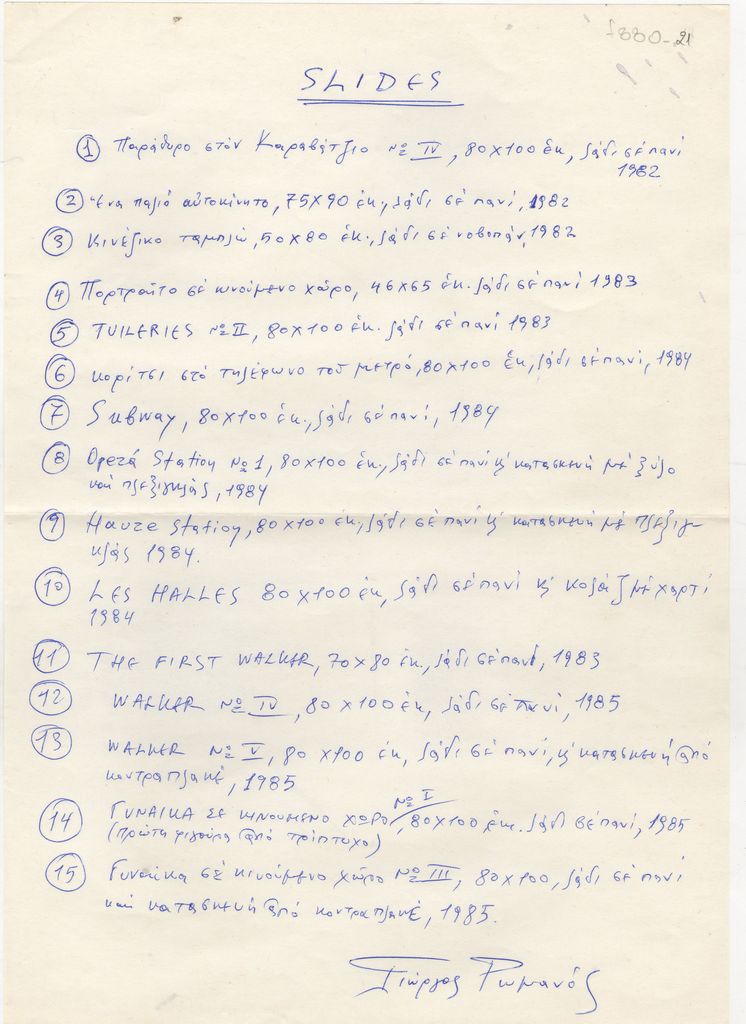 1880-21
SLIDES
1 Παράθυρο στόν Καραβάτζιο Νο IV, 80Χ100 ἑκ, λάδι σέ πανί
1982
2 Ἕνα παλιό αὐτοκίνητο, 75Χ90 ἑκ., λάδι σέ πανί, 1982
3 Κινέζικο ταμπλώ, 50Χ80 ἑκ., λάδι σέ νοβοπάν, 1982
4 Πορτραῖτο σέ κινούμενο χῶρο, 46Χ65 ἑκ. λάδι σέ πανί 1983
5 TUILERIES Νο II, 80Χ100 ἑκ. λάδι σέ πανί 1983
6 Κορίτσι στό τηλέφωνο τοῦ μετρό, 80Χ100 ἑκ, λάδι σέ πανί, 1984
7 Subway, 80Χ100 ἑκ., λάδι σέ πανί, 1984
8 Opera Station Νο 1, 80Χ100 ἑκ., λάδι σέ πανί κ' κατασκευή μέ ξύλο
καί πλεξιγκλάς, 1984
9 Havre Station, 80Χ100 ἑκ, λάδι σέ πανί κ' κατασκευή μέ πλεξιγ-
κλάς 1984.
10 LES HALLES 80Χ100 ἑκ, λάδι σέ πανί κ' κολάζ μέ χαρτί
1984
11 THE FIRST WALKER, 70Χ80 ἑκ., λάδι σέ πανί, 1983
12 WALKER Νο IV, 80Χ100 ἑκ, λάδι σέ πανί, 1985
13 WALKER Νο V, 80Χ100 ἑκ, λάδι σέ πανί, κ' κατασκευή ἀπό
κοντραπλακέ, 1985
14 ΓΥΝΑΙΚΑ ΣΕ ΚΙΝΟΥΜΕΝΟ ΧΩΡΟ Νο I, 80Χ100 ἑκ. λάδι σέ πανί, 1985
(πρώτη φιγούρα ἀπό τρίπτυχο)
15 Γυναίκα σέ κινούμενο χῶρο Νο III, 80Χ100, λάδι σέ πανί
καί κατασκευή ἀπό κοντραπλακέ, 1985.
Γιῶργος Ρωμανός